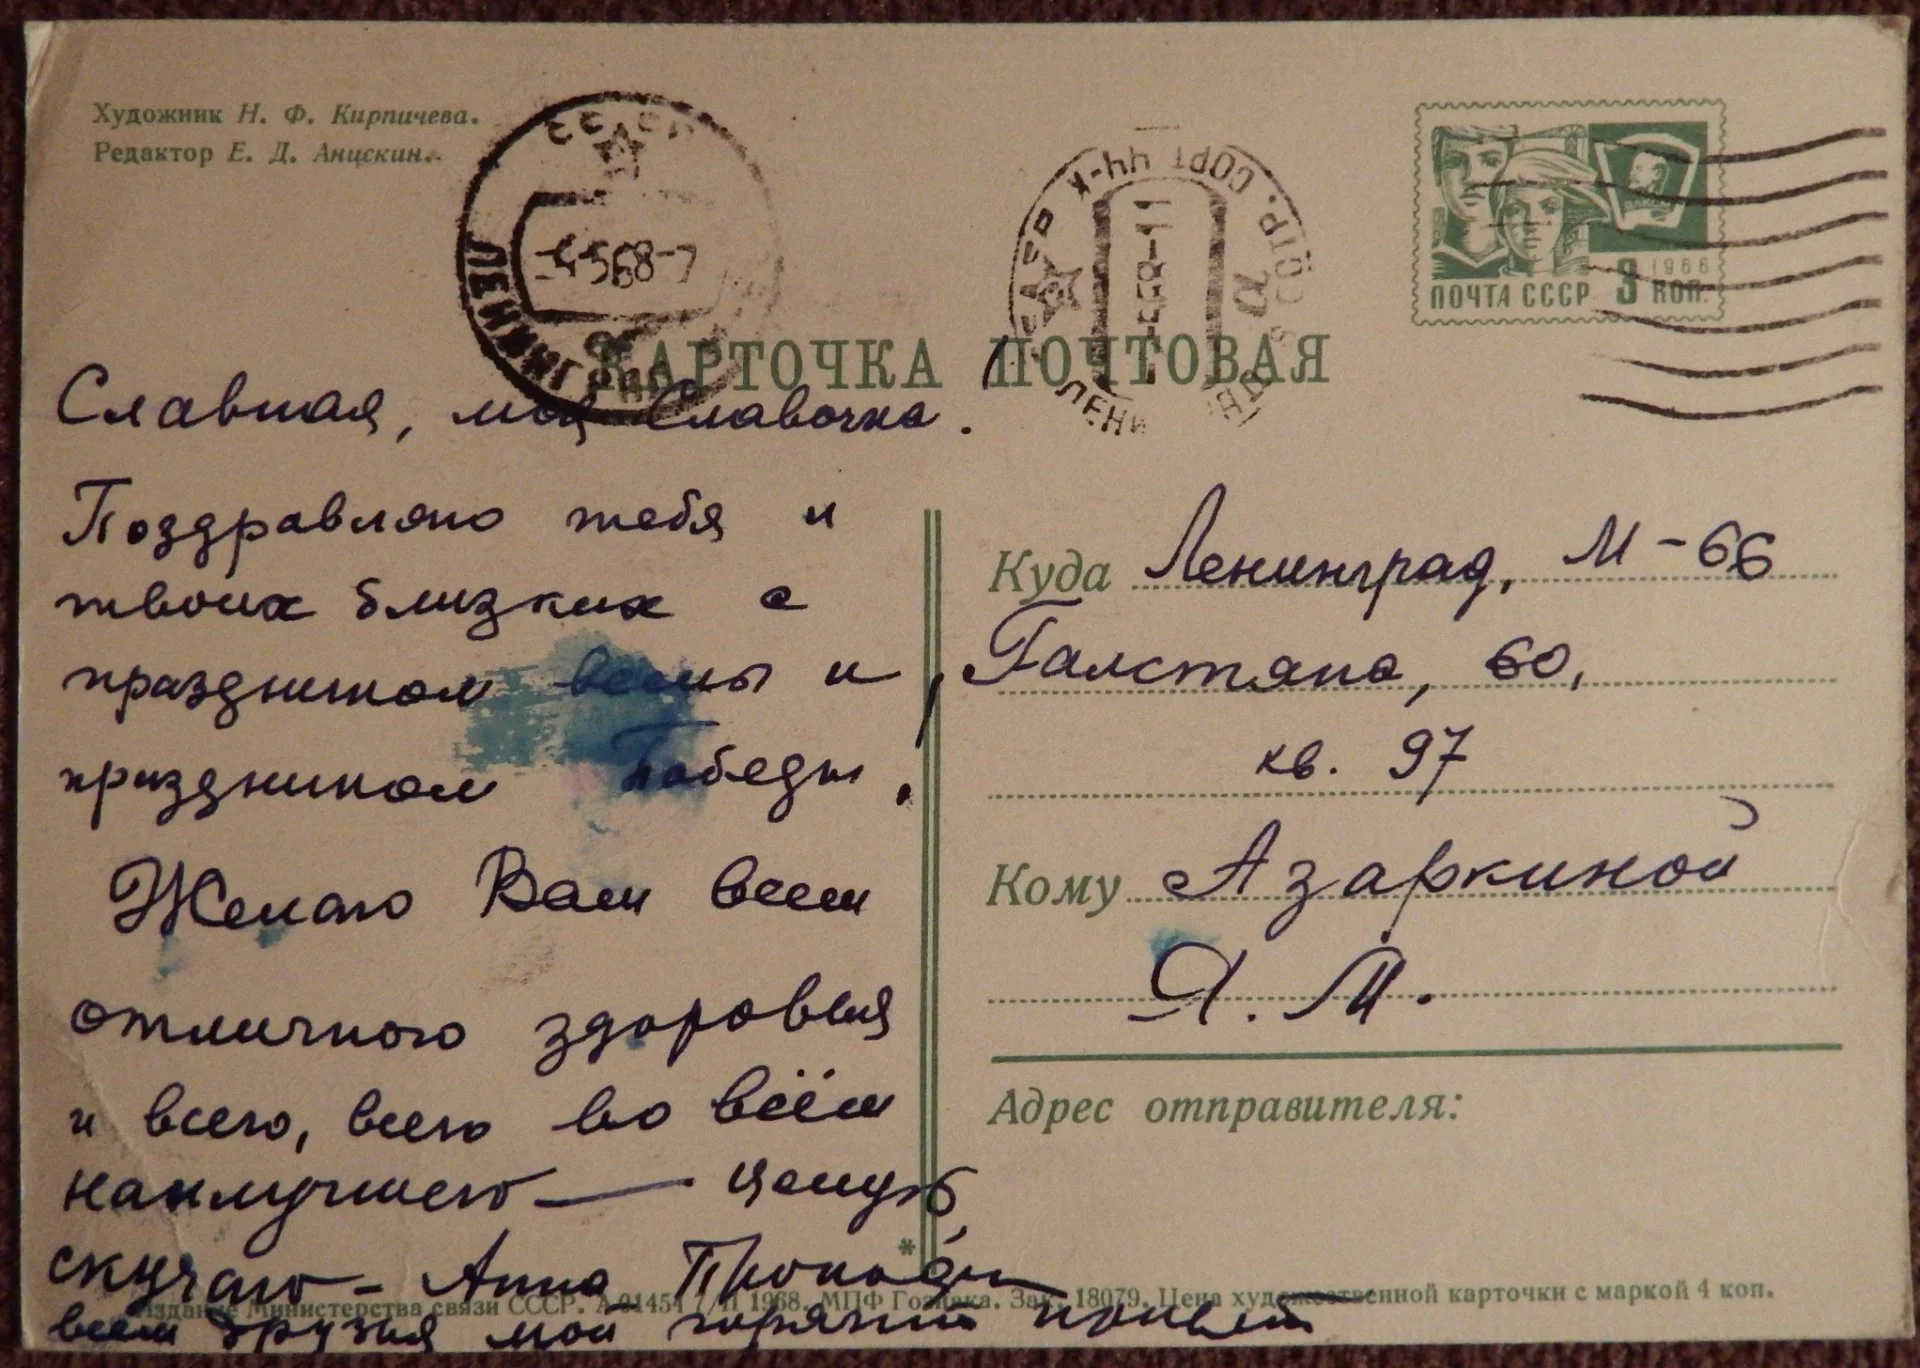 Художник Н. Ф. Кирпичева.
Редактор Е. Д. Анискин.
СССР
-4-568-7
ЛЕНИНГРАД
ПОЧТА СССР 3 КОП.
1966
КАРТОЧКА ПОЧТОВАЯ
Славная, моя Славочка.
Поздравляю тебя и
твоих близких с
праздником весны и
праздником Победы.
Желаю Вам всем
отличного здоровья
и всего, всего во всём
наилучшего — целую,
скучаю – Анна
всем друзья мой горячий привет
Куда Ленинград, М-66
Галстяна, 60,
кв. 97
Кому Азаркиной
Я. М.
Адрес отправителя:
Издание Министерства связи СССР. А 01454 7/II 1968. МПФ Гознака. Зак. 18079. Цена художественной карточки с маркой 4 коп.